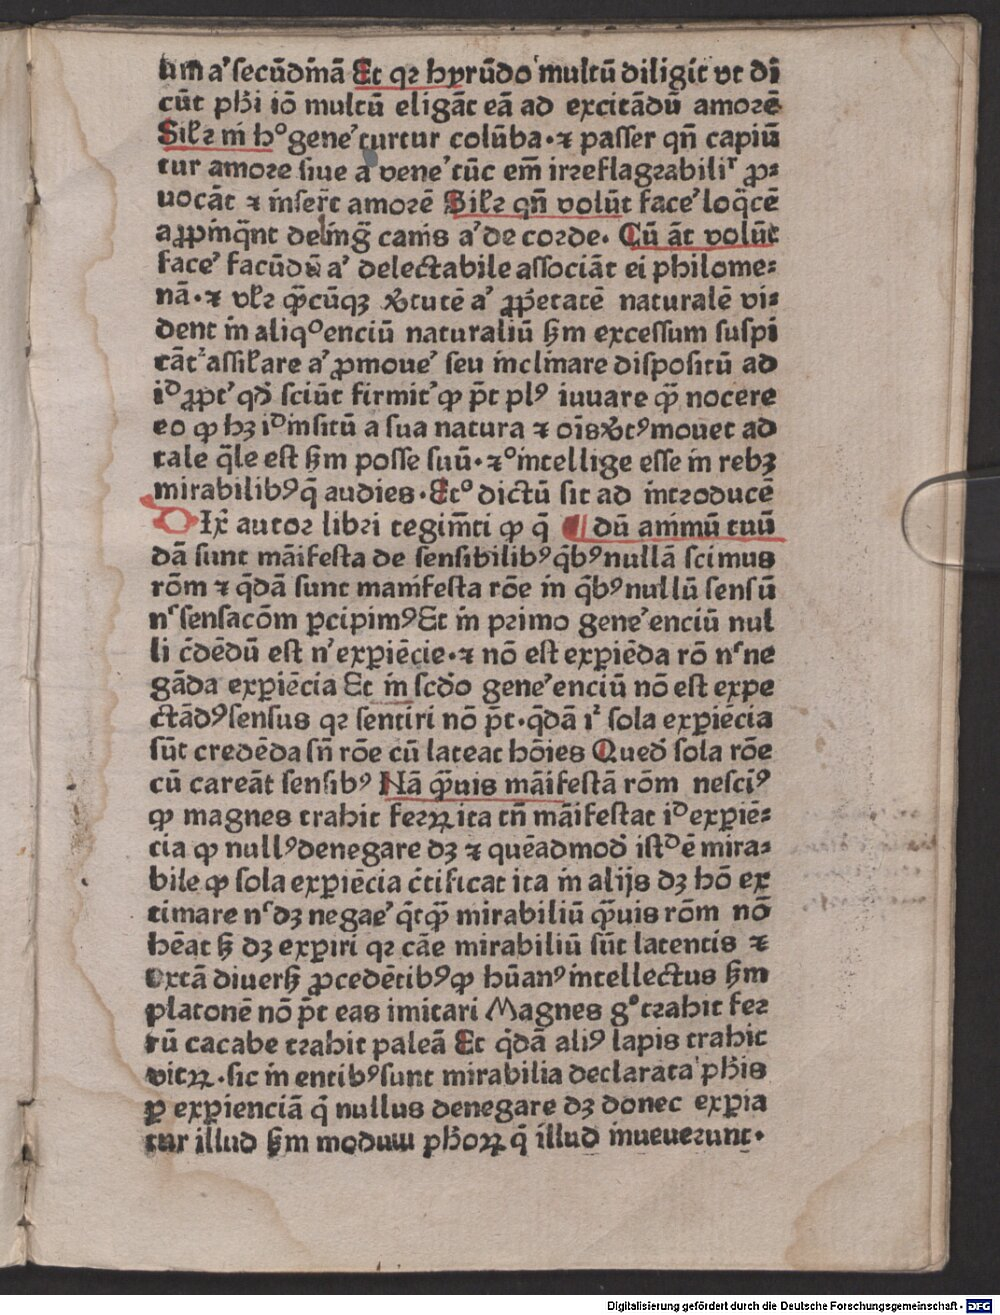 um aˀ secūdīnā Et qꝛ hyrūdo multū diligit vt di
cūt phi iō multū eligāt eā ad excitādū amorē
Silꝛ in hᵒ geneˀ turtur colūba · ⁊ passer qn̄ capiū
tur amore siue aˀ veneˀ tūc em̄ irreflagrabiliᵗ ꝓ⸗
uocāt ⁊ inserūt amorē Silꝛ qn̄ volūt faceˀ loq̄cē
aꝓpinq̄nt delinḡ canis aˀ de corde. Cū āt volūt
faceˀ facūdū aˀ delectabile associāt ei philome⸗
nā · ⁊ vlꝛ q̄cūqꝫ v̄tutē aˀ ꝓp̄etatē naturalē vi⸗
dent in aliqᵒ enciū naturaliū ẜm excessum suspi
cāt² assilare aˀ ꝓmoueˀ seu inclinare dispositū ad
iᵈ ꝓptˀ qd̄ sciūt firmitˀ ꝙ p̄t plꝰ iuuare q̄ nocere
eo ꝙ hꝫ iᵈ insitū a sua natura ⁊ oīs v̄tꝰ mouet ad
tale q̄le est ẜm posse suū · ⁊ᵒ intellige esse in rebꝫ
mirabilibꝰ q̄ audies · Etᵒ dictū sit ad introducē
DIx̄ autor libri regim̄ti ꝙ q̄ ¶ dū animū tuū
dā sunt māifesta de sensibilibꝰ q̄bꝰ nullā scimus
rōm ⁊ q̄dā sunt manifesta rōe in q̄bꝰ nullū sensū
nᶜ sensacōm ꝑcipimꝰ Et in primo geneˀ enciū nul
li c̄dēdū est nˀ expiēcie · ⁊ nō est expiēda rō nᶜ ne
gāda expiēcia Et in scd̄o geneˀ enciū nō est expe
ctādꝰ sensus qꝛ sentiri nō p̄t · q̄dā i² sola expiēcia
sūt credēda sn̄ rōe cū lateat hōies Qued̄ sola rōe
cū careāt sensibꝰ Nā q̄uis māifestā rōm nesciꝰ
ꝙ magnes trahit ferꝝ ita tn̄ māifestat iᵈ expiē⸗
cia ꝙ nullꝰ denegare dꝫ ⁊ quēadmod̄ istᵈ ē mira⸗
bile ꝙ sola expiēcia c̄tificat ita in alijs dꝫ hō ex
timare nᶜ dꝫ negaeˀ q̄tq̄ mirabiliū q̄uis rōm nō
hēat ẜ dꝫ expiri qꝛ cāe mirabiliū sūt latentis ⁊
extā diuerẜ ꝓcedētibꝰ ꝙ hūanꝰ intellectus ẜm
platonē nō p̄t eas imitari Magnes gᵒ trahit fer
rū cacabe trahit paleā Et q̄dā aliꝰ lapis trahit
vitꝝ · sic in entibꝰ sunt mirabilia declarata phis
ꝑ expienciā q̄ nullus denegare dꝫ donec expia
tur illud ẜm modum phoꝝ q̄ illud inuenerunt ·
Digitalisierung gefördert durch die Deutsche Forschungsgemeinschaft - DFG